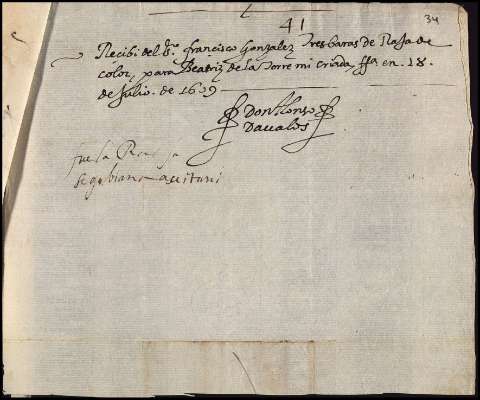 34
41
Recibi del s.or francisco Gonzalez Tres baras de Raja de
color, para Beatriz de la Torre mi criada, ffa en. 18.
de Julio. de 1609
Don Alonso
Davalos
fue la
segobiana